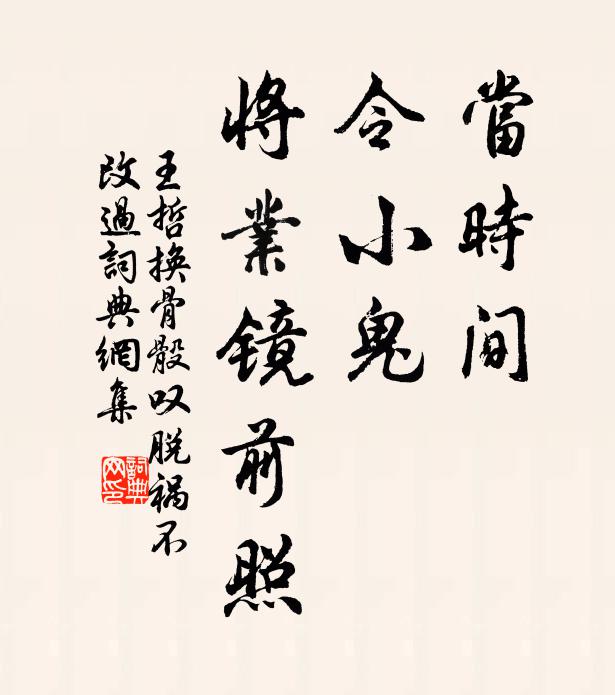 當時間
令小鬼
將業镜前照
王哲換骨骰叹脱祸不
改過詞典網集
詞典网印